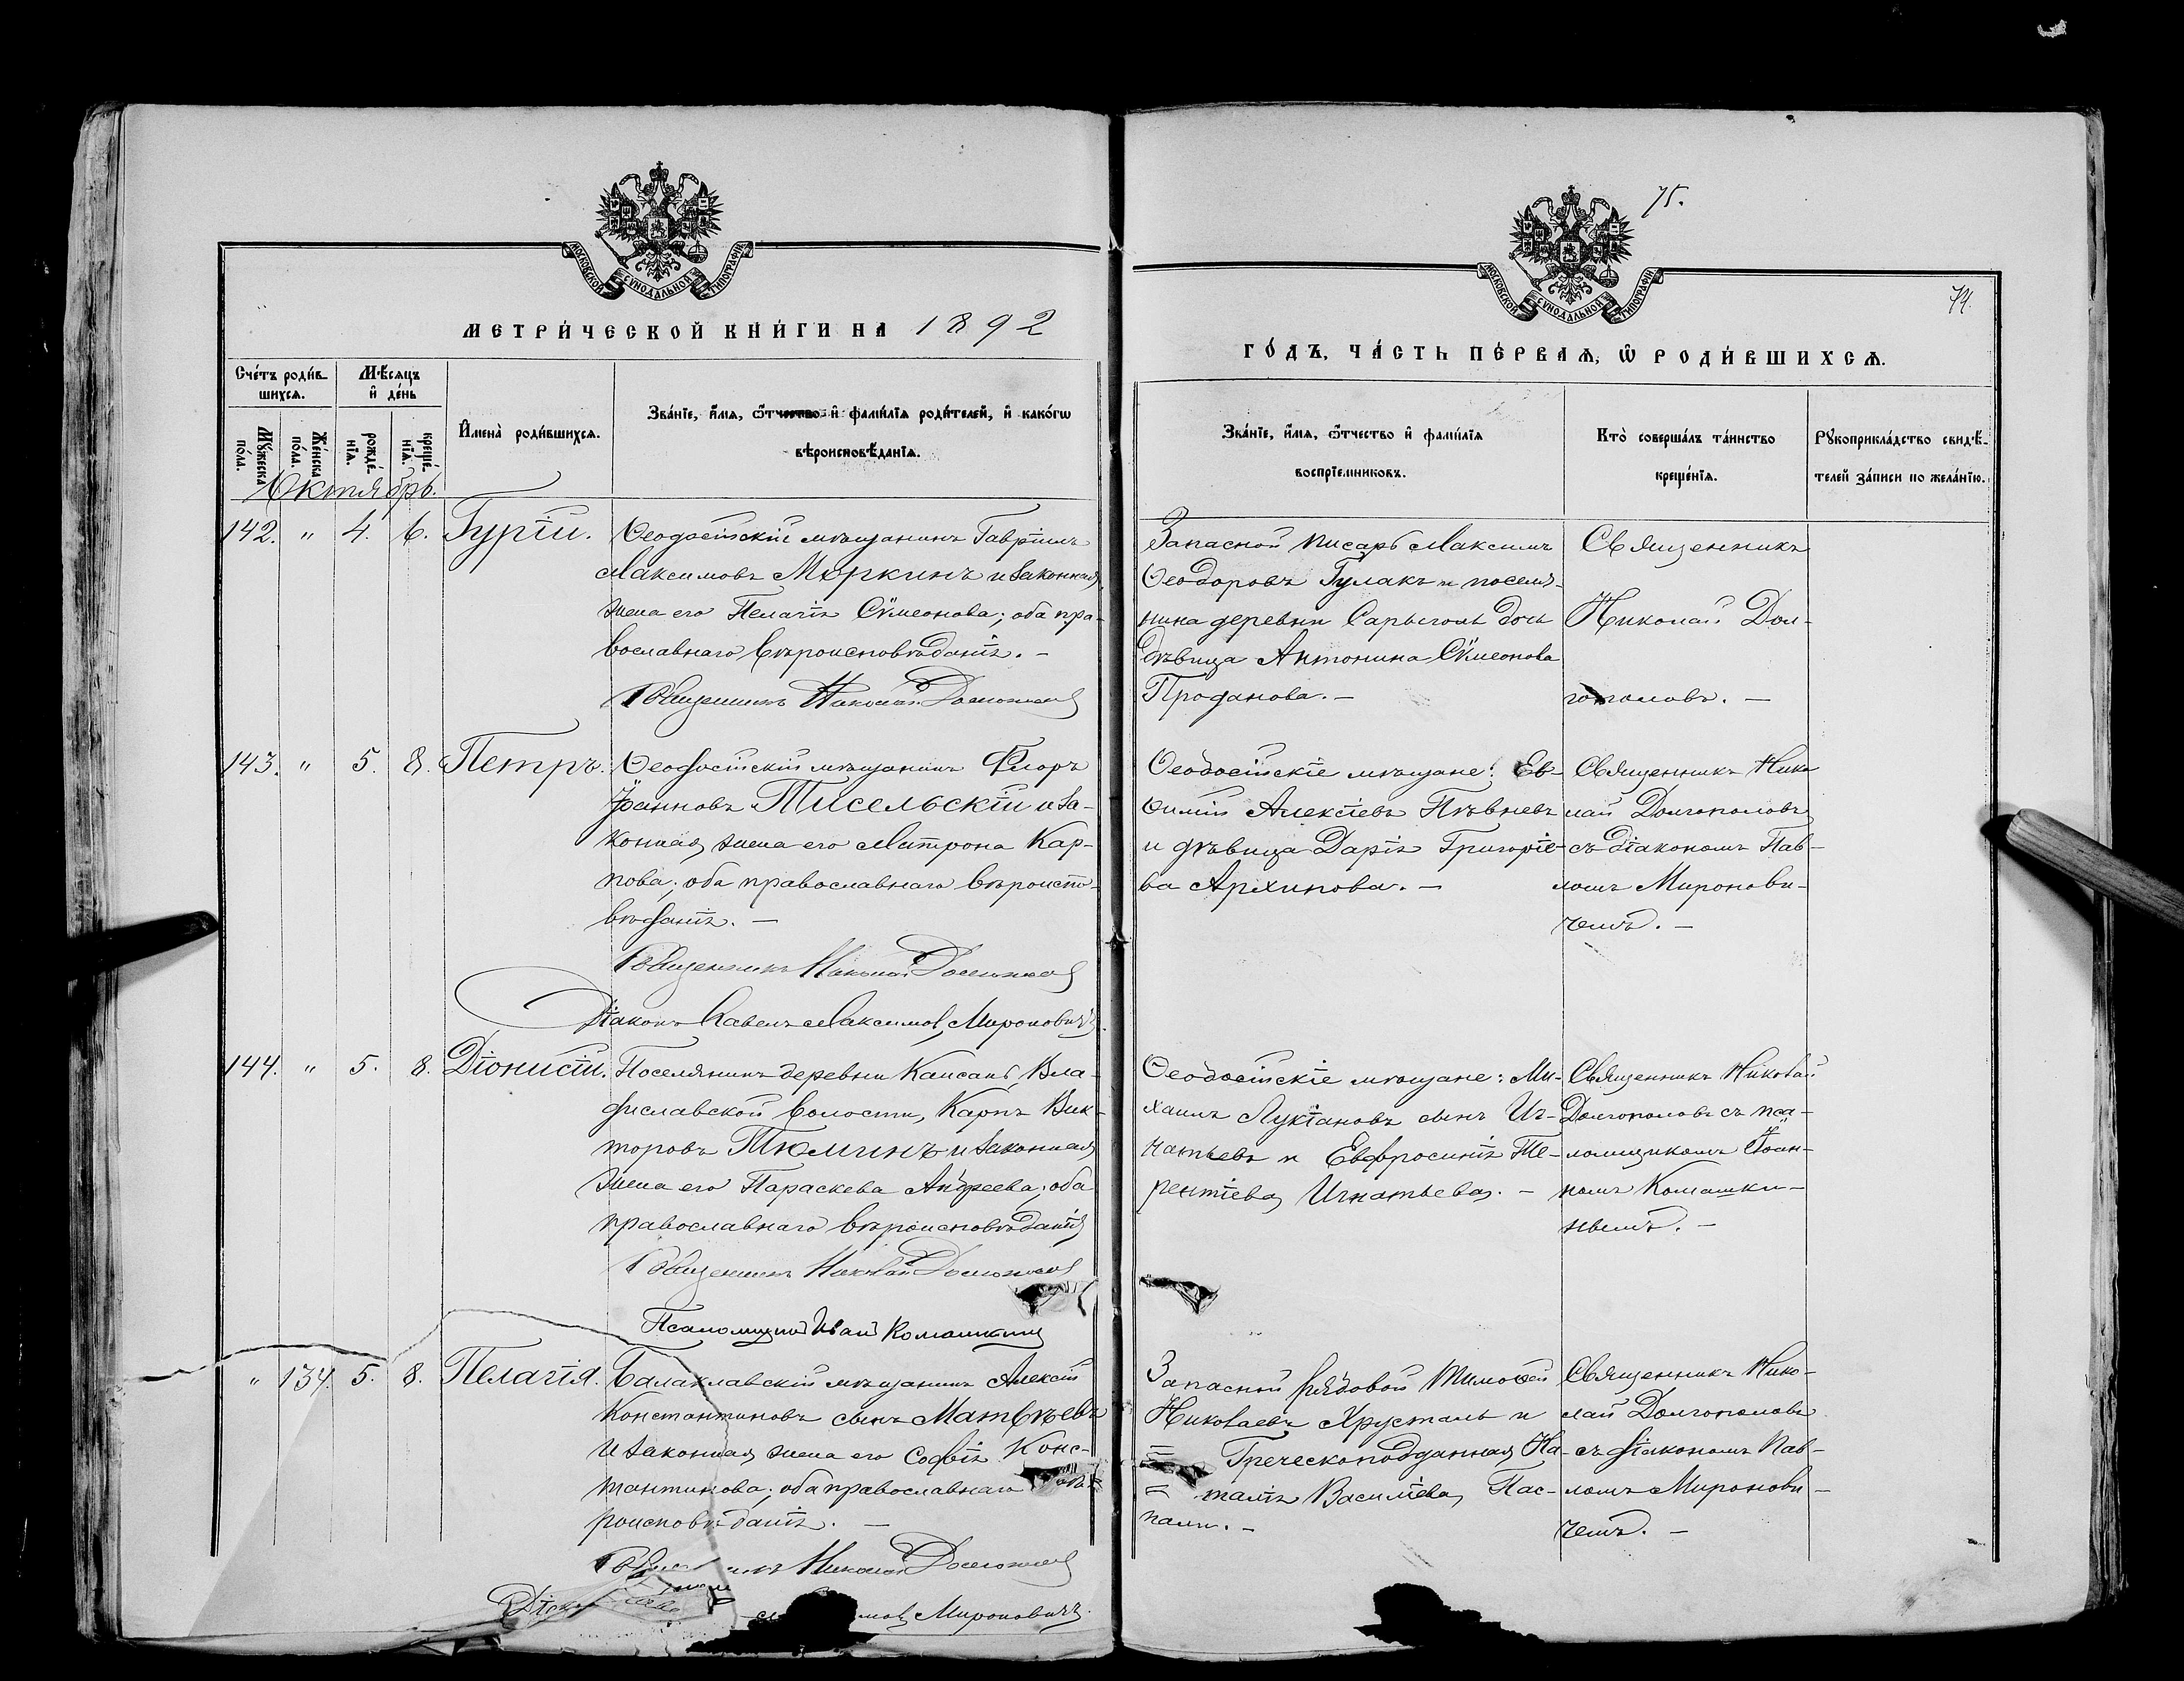 75.
74.
МОСКОВСКОЙ СѴНОДАЛЬНОЙ ТИПОГРАФІИ
МОСКОВСКОЙ СѴНОДАЛЬНОЙ ТИПОГРАФІИ
МЕТРИ́ЧЕСКОЙ КНИ́ГИ НА 1892
ГО́ДЪ, ЧА́СТЬ ПЕ́РВАѦ, Ѡ҆ РОДИ́ВШИХСѦ.
Сче́тъ роди́в-
шихсѧ.
Мꙋ́жеска по́ла.
Же́нска по́ла.
Мѣ́сѧцъ
и҆ де́нь
рожде́-
нїѧ.
креще́-
нїѧ.
И҆мена̀ роди́вшихсѧ.
Зва́нїе, и҆́мѧ, ѻ҆́тчество и҆ фами́лїѧ роди́телей, и҆ како́гѡ
вѣроисповѣ́данїѧ.
Зва́нїе, и҆́мѧ, ѻ҆́тчество и҆ фами́лїѧ
воспрїе́мниковъ.
Кто̀ соверша́лъ та́инство
креще́нїѧ.
Рꙋкоприкла́дство свидѣ́-
телей за́писи по жела́нїю.
Октябрь.
142. " 4. 6. Гурій.
Ѳеодосійскій мѣщанинъ Гавріилъ
Максимовъ Мюркинъ и законная
жена его Пелагія Сѵмеонова; оба пра-
вославнаго вѣроисповѣданія. -
Священникъ Николай Долгополов
Запасной писарь Максимъ
Ѳеодоровъ Гулакъ и поселя-
нина деревни Сарыголь дочь
дѣвица Антонина Сѵмеонова
Проданова. -
Священникъ
Николай Дол-
гополовъ. -
143. " 5. 8. Петръ.
Ѳеодосійскій мѣщанинъ Флоръ
Іоанновъ Тисельскій и за-
конная жена его Матрона Кар-
пова; оба православнаго вѣроиспо-
вѣданія. -
Священникъ Николай Долгополов
Діаконъ Павелъ Максимов Мироновичъ.
Ѳеодосійскіе мѣщане: Ев-
ѳимій Алексіевъ Пѣвневъ
и дѣвица Дарія Григоріе-
ва Архипова. -
Священникъ Нико
лай Долгополовъ
съ діакономъ Пав-
ломъ Миронови-
чемъ. -
144. " 5. 8. Діонисій.
Поселянинъ деревни Капсанъ, Вла-
диславской волости, Карпъ Вик-
торовъ Тюминъ и законная
жена его Параскева Андреева; оба
православнаго вѣроисповѣданія
Священникъ Николай Долгополов
Псаломщикъ Иванъ Комашкинъ
Ѳеодосійскіе мѣщане: Ми-
хаилъ Лукіановъ сынъ Иг-
натьевъ и Евфросинія Те-
рентіева Игнатьева. -
Священникъ Николай
Долгополовъ съ пса-
ломщикомъ Іоан-
номъ Комашки-
нымъ. -
" 134. 5. 8. Пелагія.
Балаклавскій мѣщанинъ Алексій
Константиновъ сынъ Матвѣевъ
и законная жена его Софія Конс-
тантинова; оба православнаго вѣ-
роисповѣданія. -
Николай Долгополов
Діако Мироновичъ.
Запасной рядовой Тимоѳей
Николаевъ Хрусталь и
= Греческоподданная На-
= талія Василіева Пас-
пали. -
Священникъ Нико-
лай Долгополовъ
съ діакономъ Пав-
ломъ Миронови-
чемъ. -